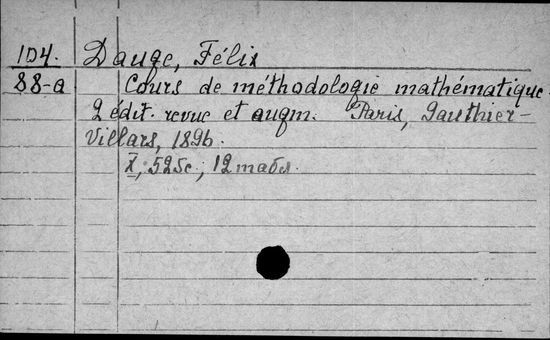 104. Dauge, Félix
88-a Cours de méthodologie mathématique.
2 édit. revue et augm. Paris, Gauthier-
Villars, 1896.
X, 525c., 12 табл.